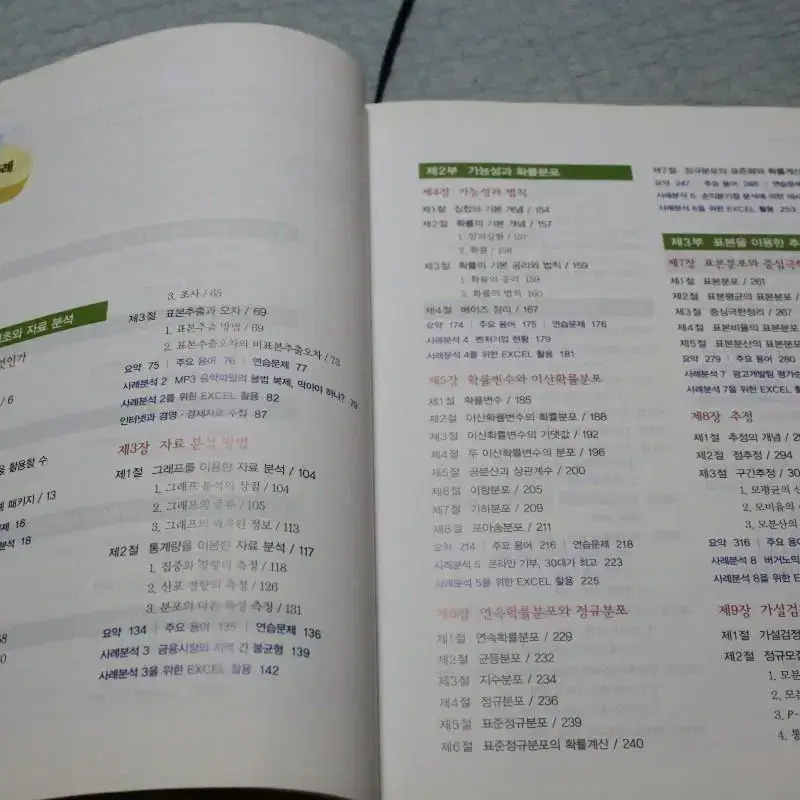 례
초와 자료 분석
엇인가
/ 6
을 활용할 수
계 패키지 / 13
문제 16
분석 18
3. 조사 / 65
제3절 표본추출과 오차 / 69
1. 표본추출 방법 / 69
2. 표본추출오차와 비표본추출오차 / 73
요약 75 | 주요 용어 76 | 연습문제 77
사례분석 2 MP3 음악파일의 불법 복제, 막아야 하나? 79
사례분석 2를 위한 EXCEL 활용 82
인터넷과 경영·경제자료 수집 87
제3장 자료 분석 방법
제1절 그래프를 이용한 자료 분석 / 104
1. 그래프 분석의 장점 / 104
2. 그래프의 종류 / 105
3. 그래프의 왜곡된 정보 / 113
제2절 통계량을 이용한 자료 분석 / 117
1. 집중화 경향의 측정 / 118
2. 산포 경향의 측정 / 126
3. 분포의 다른 특성 측정 / 131
요약 134 | 주요 용어 135 | 연습문제 136
사례분석 3 금융시장의 지역 간 불균형 139
사례분석 3을 위한 EXCEL 활용 142
제2부 가능성과 확률분포
제4장 가능성과 법칙
제1절 집합의 기본 개념 / 154
제2절 확률의 기본 개념 / 157
1. 통계실험 / 157
2. 확률 / 158
제3절 확률의 기본 공리와 법칙 / 159
1. 확률의 공리 159
2. 확률의 법칙 160
제4절 베이즈 정리 / 167
요약 174 | 주요 용어 175 | 연습문제 176
사례분석 4 벤처기업 현황 179
사례분석 4를 위한 EXCEL 활용 181
제5장 확률변수와 이산확률분포
제1절 확률변수 / 185
제2절 이산확률변수의 확률분포 / 188
제3절 이산확률변수의 기댓값 / 192
제4절 두 이산확률변수의 분포 / 196
제5절 공분산과 상관계수 / 200
제6절 이항분포 / 205
제7절 기하분포 / 209
제8절 포아송분포 / 211
요약 214 | 주요 용어 216 | 연습문제 218
사례분석 5 온라인 기부, 30대가 최고 223
사례분석 5를 위한 EXCEL 활용 225
제6장 연속확률분포와 정규분포
제1절 연속확률분포 / 229
제2절 균등분포 / 232
제3절 지수분포 / 234
제4절 정규분포 / 236
제5절 표준정규분포 / 239
제6절 표준정규분포의 확률계산 / 240
제7절 정규분포의 표준화와 확률계산
요약 247 | 주요 용어 248 | 연습문
사례분석 6 손익분기점 분석에 의한
사례분석 6을 위한 EXCEL 활용 253
제3부 표본을 이용한 추
제7장 표본분포와 중심극한
제1절 표본분포 / 261
제2절 표본평균의 표본분포 /
제3절 중심극한정리 / 267
제4절 표본비율의 표본분포
제5절 표본분산의 표본분포
요약 279 | 주요 용어 280
사례분석 7 광고개발팀 평가
사례분석 7을 위한 EXCEL 활
제8장 추정
제1절 추정의 개념 / 29
제2절 점추정 / 294
제3절 구간추정 / 30
1. 모평균의 신
2. 모비율의
3. 모분산의
요약 316 | 주요 용어 3
사례분석 8 버거노믹
사례분석 8을 위한 E
제9장 가설검
제1절 가설검정
제2절 정규모집
1. 모분
2. 모
3. P-
4. 통